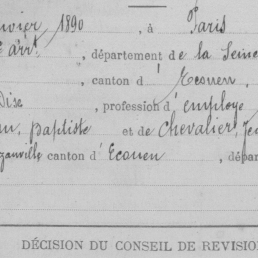 nvier 1890 , à Paris
e arrt , département de la Seine
, canton d' Ecouen,
Oise , profession d' employé
an, Baptiste et de Chevalier, Je
zanville canton d' Ecouen , dépa
DÉCISION DU CONSEIL DE REVISIO